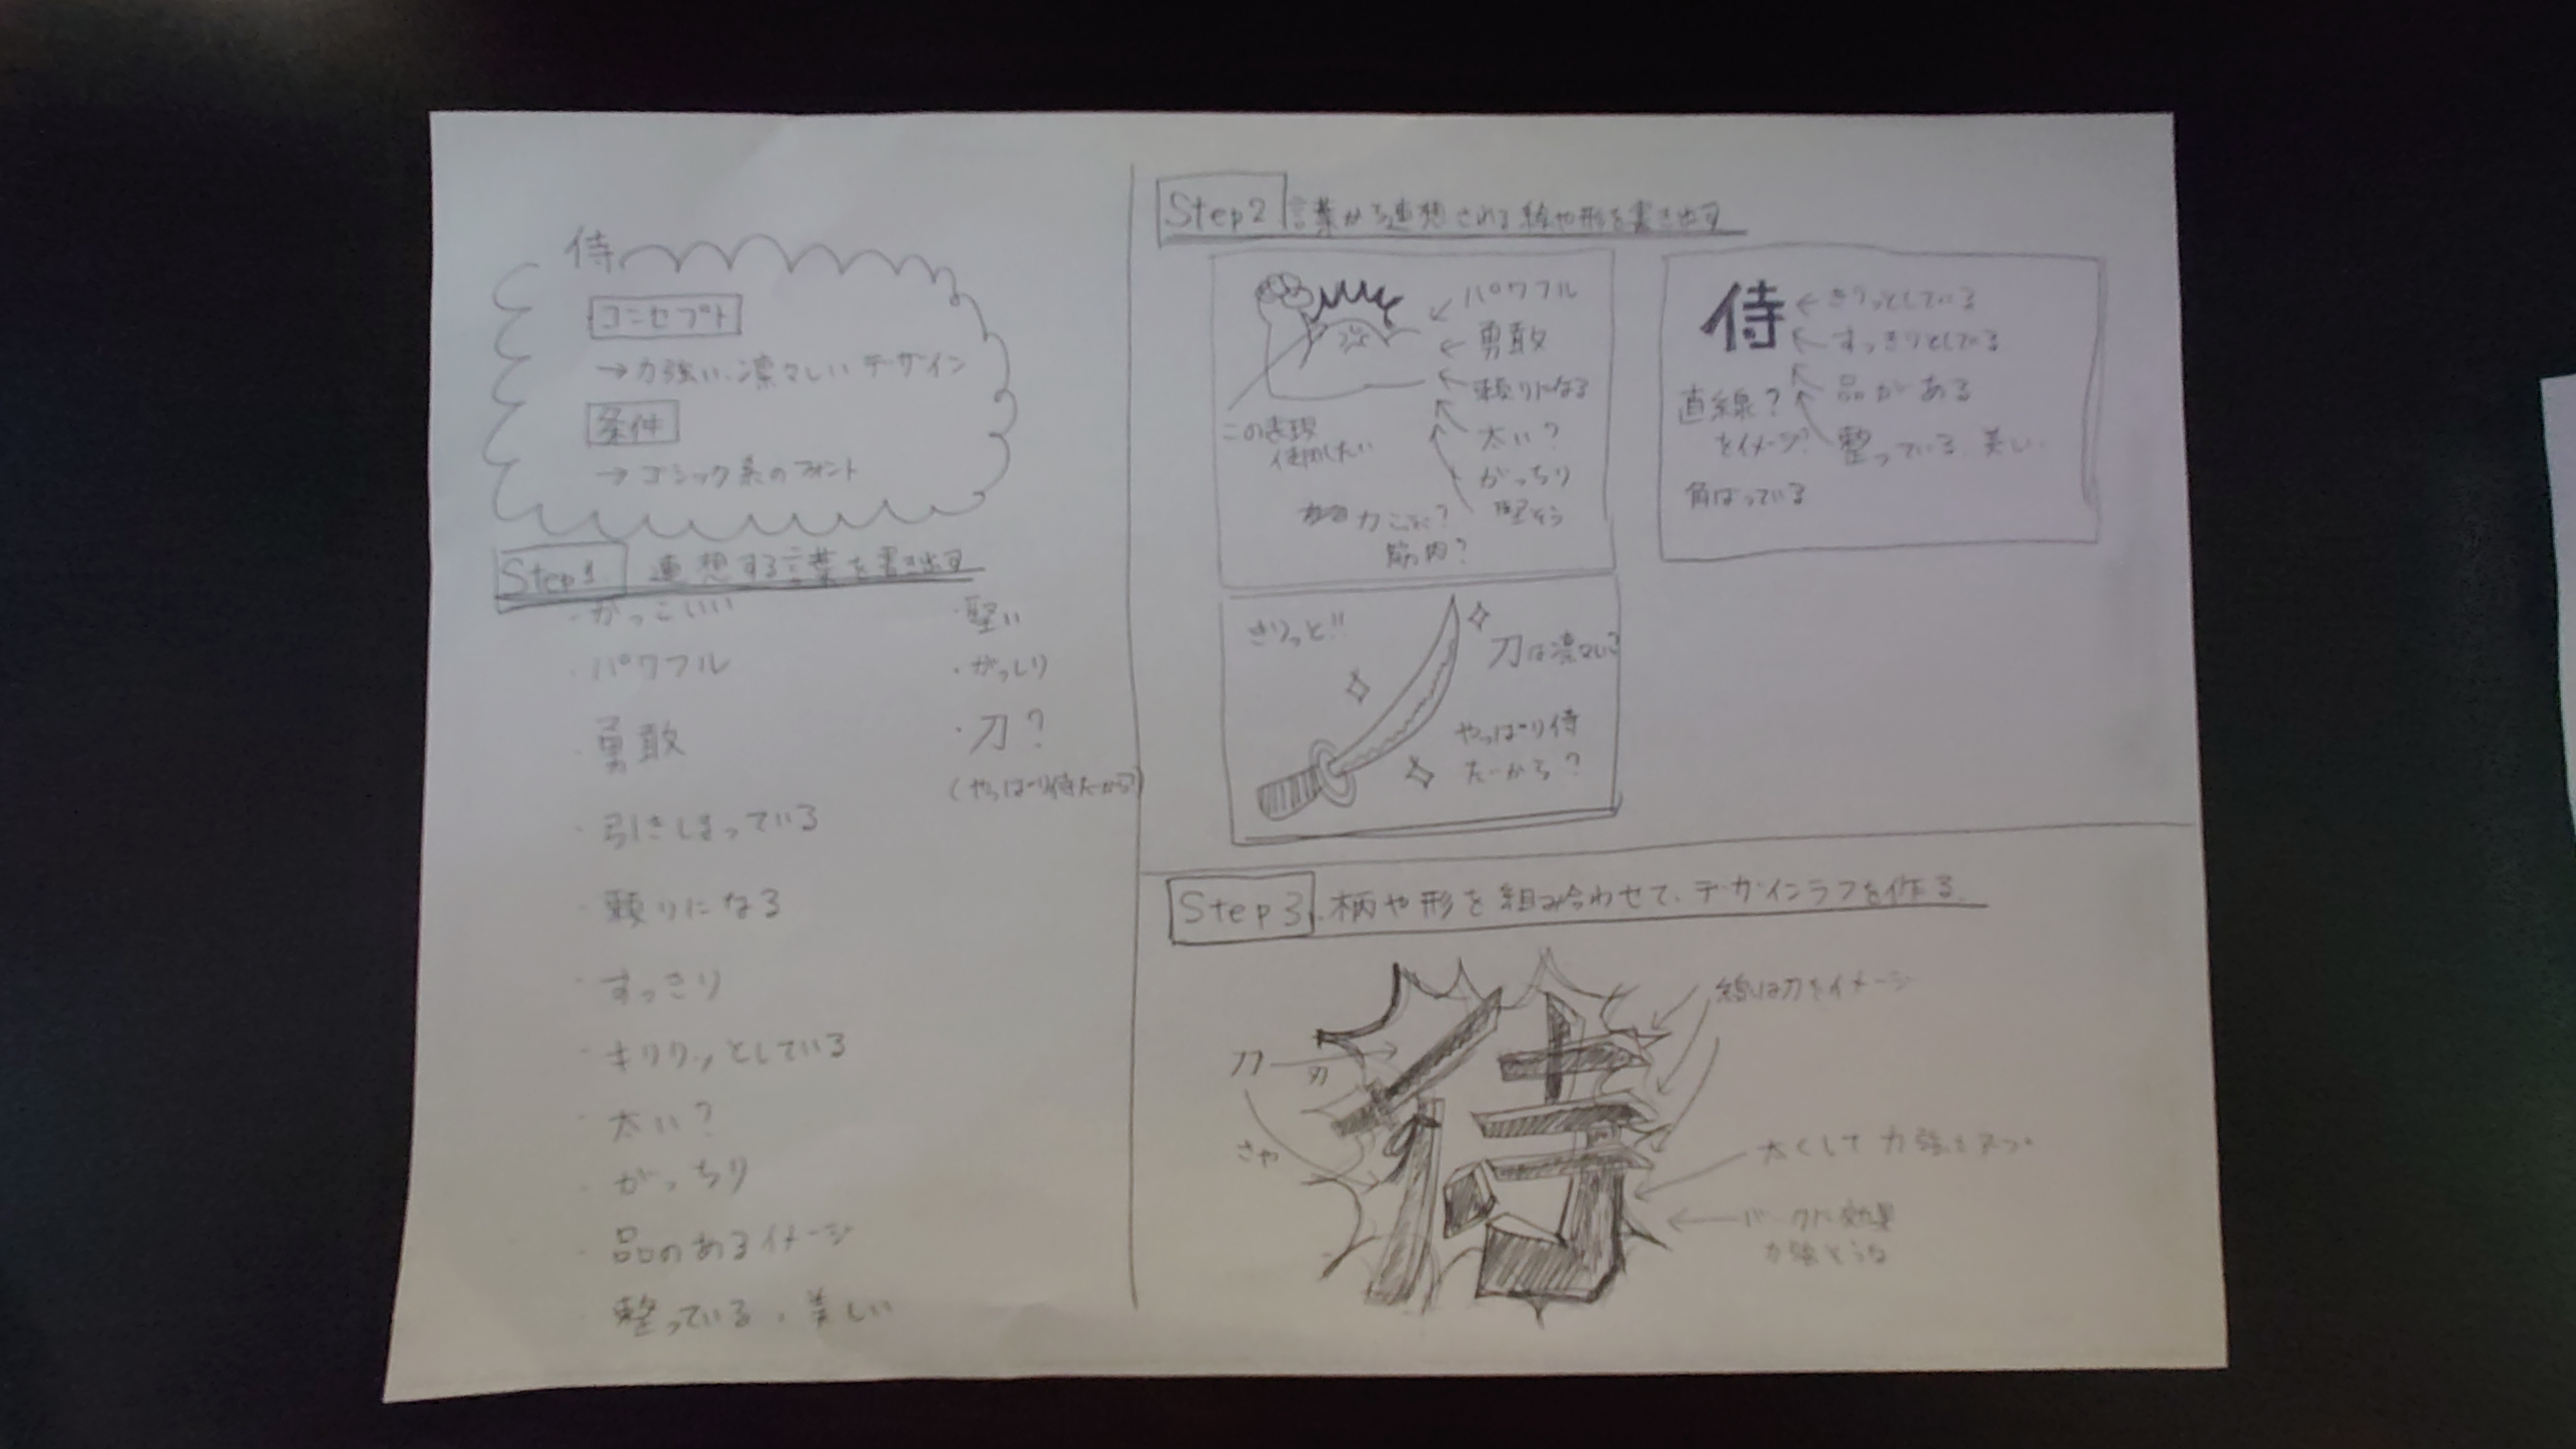 侍
コンセプト
→力強い、凛々しいデザイン
条件
→ゴシック系のフォント
Step1 連想する言葉を書き出す
・かっこいい
・パワフル
・勇敢
・引きしまっている
・頼りになる
・すっきり
・キリリッとしている
・太い?
・がっちり
・品のあるイメージ
・整っている、美しい
・堅い
・がっしり
・刀?
(やっぱり侍だから?)
Step2 言葉から連想される絵や形を書き出す
パワフル
勇敢
頼りになる
太い?
がっちり
堅そう
この表現
使用したい
力こぶ?
筋肉?
侍
きりっとしている
すっきりとしている
品がある
整っている 美しい
直線?
をイメージ?
角ばっている
きりっと!!
刀は凛々しい?
やっぱり侍
だから?
Step3. 柄や形を組み合わせて、デザインラフを作る
侍
線は刀をイメージ
刀
刃
さや
太くして力強さUP
バックに効果
力強そうな